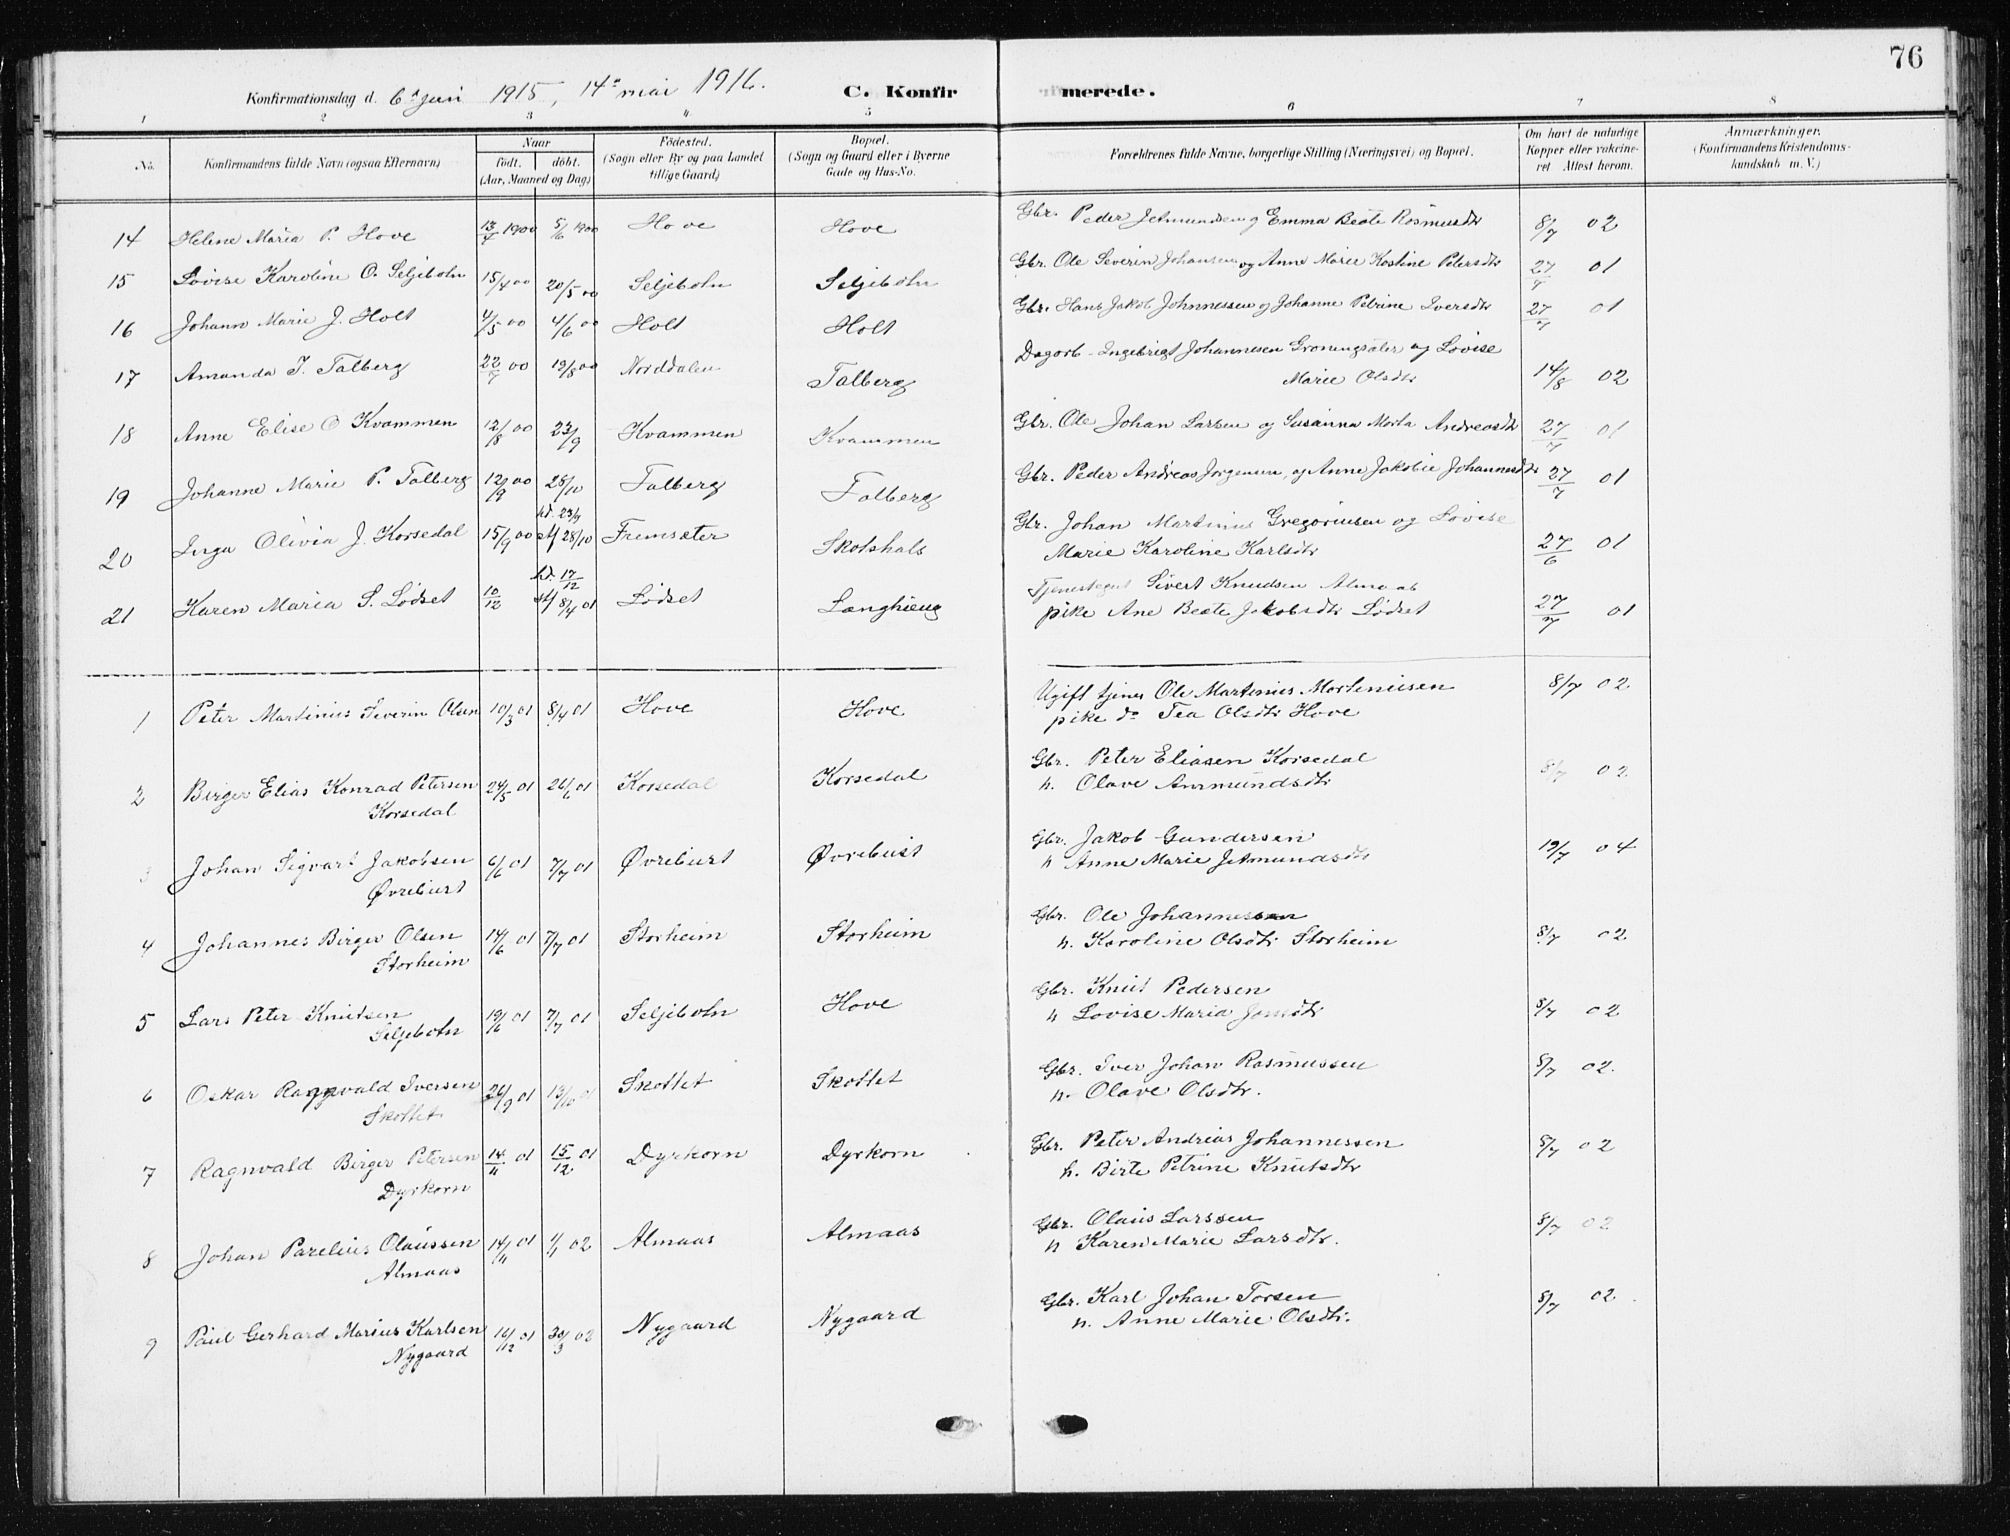 76
Konfirmationsdag d. 6te juni 1915, 14de mai 1916. C. Konfirmerede.
1 2 3 4 5 6 7 8
No. Konfirmandens fulde Navn (ogsaa Efternavn) Naar født. døbt. (Aar, Maaned og Dag) Födested. (Sogn eller By og paa Landet tillige Gaard) Bopæl. (Sogn og Gaard eller i Byerne Gade og Hus-No. Forældrenes fulde Navne, borgerlige Stilling (Næringsvei) og Bopæl. Om havt de naturlige Kopper eller vakcineret Attest herom. Anmærkninger. (Konfirmandens Kristendomskundskab m. V.)
14 Helene Maria P. Hove 13/4 1900 5/6 1900 Hove Hove Gbr. Peder Jetmundsen og Emma Beate Rasmusdtr 8/7 02
15 Lovise Karoline O. Seljebotn 15/4 00 20/5 00 Seljebotn Seljebotn Gbr. Ole Severin Johansen og Anne Marie Kostine Petersdtr 27/7 01
16 Johann Marie J. Holt 4/5 00 4/6 00 Holt Holt Gbr. Hans Jakob Johnnessen og Johanne Petrine Iversdtr 27/7 01
17 Amanda I. Talberg 22/7 00 19/8 00 Norddalen Talberg Dagarb. Ingebrigt Johannesen Groningsæter og Lovise
Marie Olsdtr 14/8 02
18 Anne Elise O Kvammen 12/8 00 23/9 Kvammen Kvammen Gbr. Ole Johan Larsen og Susanna Marta Andreasdtr 27/7 01
19 Johanne Marie P. Talberg 12/9 00 28/10 Talberg Talberg Gbr. Peder Andreas Jørgensen og Anne Jakobie Johannesdtr 27/7 01
20 Inga Olivia J. Korsedal 15/9 00 hd. 23/9 stf 28/10 Fremsæter Skotshals Gbr. Johan Martinus Gregoriusen og Lovise
Marie Karoline Karlsdtr 27/6 01
21 Karen Maria S. Lødset 10/12 hd. 17/12 stf 8/4 01 Lødset Langhaug Tjenestegut Sivert Knudsen Almo ab
pike Ane Beate Jakobsdtr Lødset 27/7 01
1 Peter Martinius Severin Olsen 10/3 01 8/4 01 Hove Hove Ugift tjenes Ole Martinius Mortenüsen
pike do Tea Olsdtr Hove 8/7 02
2 Birger Elias Konrad Petersen 24/5 01 26/6 01 Korsedal Korsedal Gbr. Peter Eliasen Korsedal
Korsedal h. Olave Ammundsdtr 8/7 02
3 Johan Sigvart Jakobsen 6/6 01 7/7 01 Øvrebust Øvrebust Gbr. Jakob Gundersen
Øvrebust h Anne Marie Jetmundsdtr 19/7 04
4 Johannes Birger Olsen 14/6 01 7/7 01 Storheim Storheim Gbr. Ole Johannessen
Storheim h. Karoline Olsdtr Storheim 8/7 02
5 Lars Peter Knutsen 19/6 01 7/7 01 Seljebotn Hove Gbr. Knut Pedersen
Seljebotn h Lovise Maria Jonsdtr 8/7 02
6 Oskar Ragnvald Iversen 26/9 01 13/10 01 Skottet Skottet Gbr. Iver Johan Rasmussen
Skottet h. Olave Olsdtr. 8/7 02.
7 Ragnvald Birger Petersen 14/11 01 15/12 01 Dyrkorn Dyrkorn Gbr. Peter Andreas Johannessen
Dyrkorn h. Birte Petrine Knutsdtr 8/7 02
8 Johan Parelius Olaussen 14/11 01 1/1 02 Almaas Almaas Gbr. Olaus Larssen
Almaas h Karen Marie Larsdtr. 8/7 02
9 Paul Gerhard Marius Karlsen 16/12 01 30/3 02 Nygaard Nygaard Gbr. Karl Johan Torsen
Nygaard h. Anne Marie Olsdtr. 8/7 02